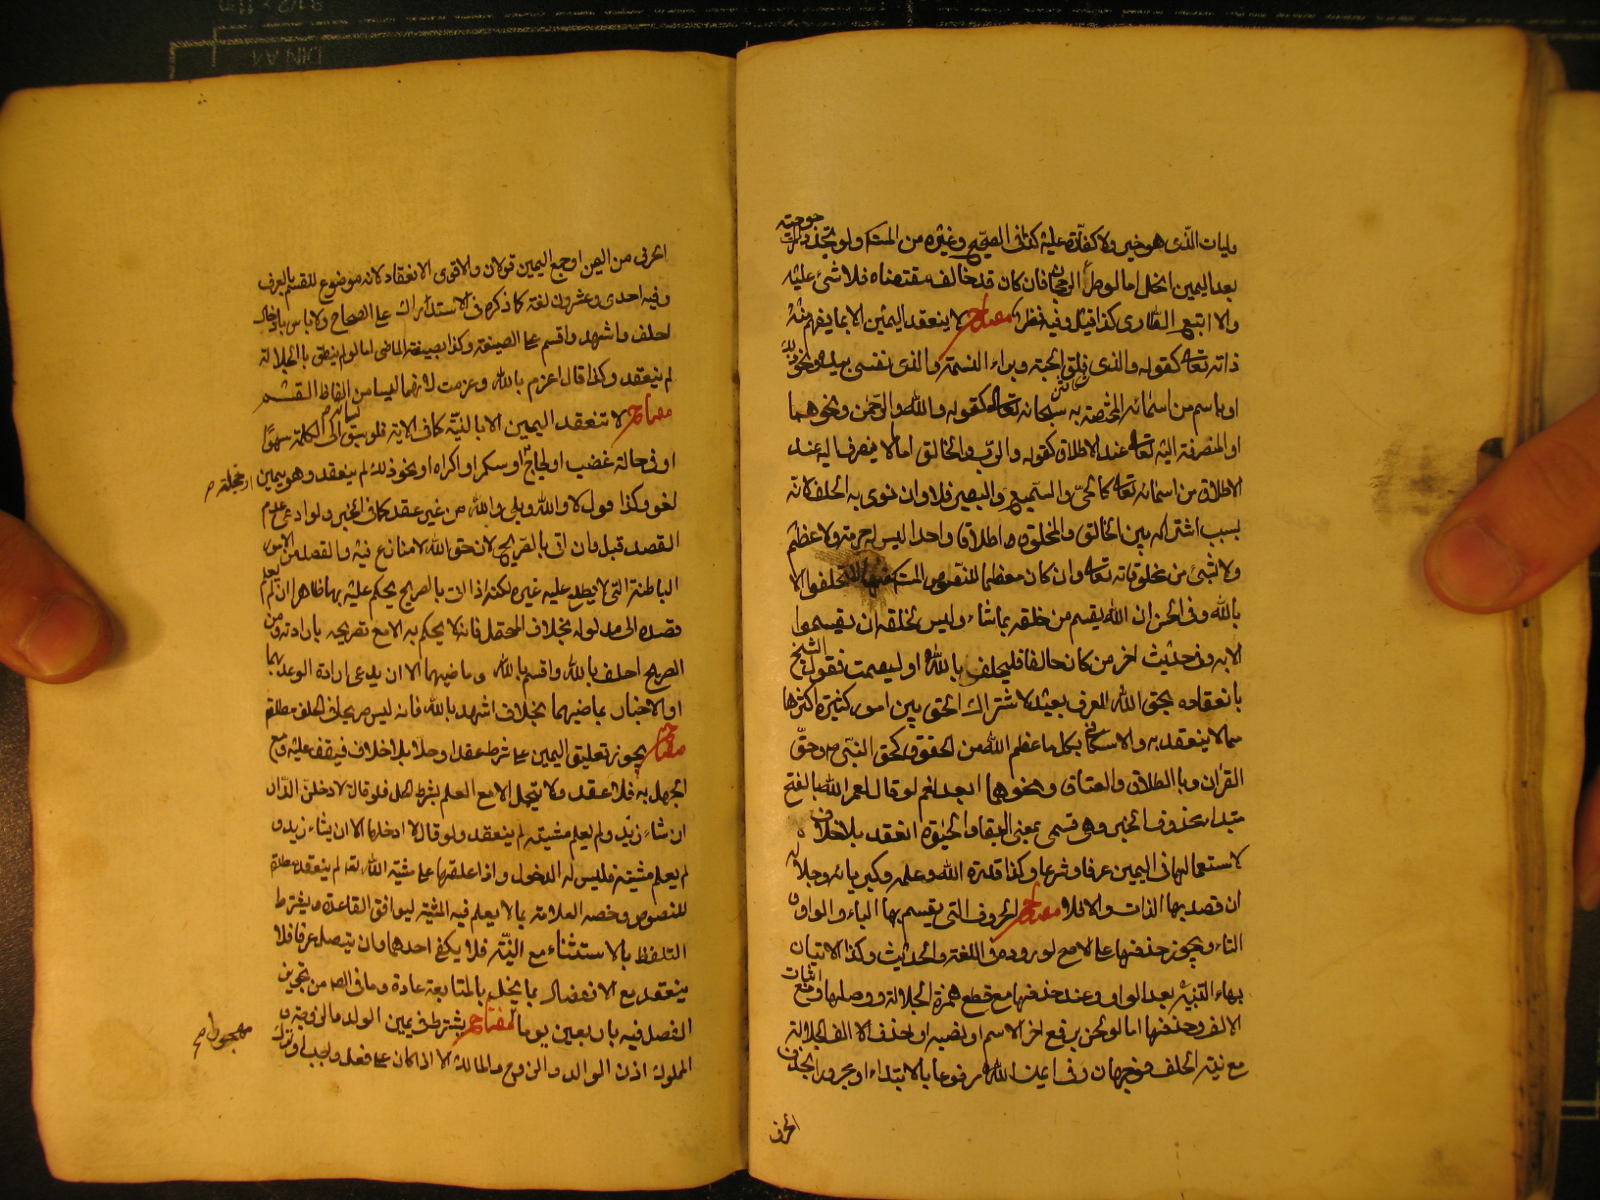 وليات الذى هو خير ولا كفارة عليه كذا فى الصحيح وغيره من المست ولو تجددت
مرجوحيته
بعد اليمين انحل اما لو حل الرجحان فان كان قد خالف مقتضاه فلا شئ عليه
والا اتبع الطارى كذا قيل وفيه نظر مفتاح لا ينعقد اليمين الا بما يفهم منه
ذاته تعالى كقوله والذى فلق الحبة وبراء النسمة والذى نفسى بيده ونحو ذلك
او باسم من اسمائه المختصة به سبحانه تعالى كقوله والله والرحمن ونحوهما
او المنصرفة اليه تعالى عند الاطلاق كقوله والرب والخالق اما لا ينصرف اليه عند
الاطلاق من اسمائه تعالى كالحى والسميع والبصير فلا وان نوى به الحلف لانه
بسبب اشتراكه بين الخالق والمخلوق اطلاقا واحدا ليس له حرمة ولا عظم
ولا بشئ من مخلوقاته تعالى وان كان معظما للنصوص المست منها لا تحلفوا الا
بالله وفى الحسن ان الله يقسم من خلقه بما شاء وليس لخلقه ان يقسموا
الا به وفى حديث اخر من كان حالفا فليحلف بالله او ليصمت فقول الشيخ
بانعقاده بحق الله للعرف بعيد لاشتراك الحق بين امور كثيرة اكثرها
مما لا ينعقد به والاسكافى بكل ما عظم الله من الحقوق كحق النبى ص وحق
القرآن وبالطلاق والعتاق ونحوهما ابعد نعم لو قال لعمر الله بالفتح
مبتداء محذوف الخبر وهى قسمى بمعنى البقاء والحيوة انعقد بلا خلاف
لاستعمالها فى اليمين عرفا وشرعا وكذا قدرة الله وعلمه وكبريائه وجلاله
ان قصد بها الذات والا فلا مفتاح الحروف التى يقسم بها الباء والواو و
التاء ويجوز حذفها على الاصح لوروده فى اللغة والحديث وكذا الاتيان
بهاء التنبيه بعد الواو وعند حذفها مع قطع همزة الجلالة ووصلها ومع اثبات
الالف وحذفها اما لو لحن برفع اخر الاسم او نصبه او حذف الالف الجلالة
مع نيته الحلف فوجهان وفى ايمن الله مرفوعا بالابتداء او مجرور الحذف
الحرف
الحرفى من اليمن او جمع اليمين قولان والاقوى الانعقاد لانه موضوع للقسم بالعرف
وفيه احدى وعشرون لغة كما ذكره فى الاستدراك على الصحاح ولا باس بادخال
احلف واشهد واقسم على الصيغة وكذا بصيغة الماضى اما لو لم ينطق بالجلالة
لم ينعقد وكذا قال اعزم بالله وعزمت لانهما ليسا من الفاظ القسم
مفتاح لا تنعقد اليمين الا بالنية كما فى الاية فلو سبق لسانه الى الكلمة سهوا
او فى حالة غضب او لجاج او سكر او اكراه او نحو ذلك لم ينعقد وهو يمين
او عجلة ص
لغو وكذا قول لا والله وبلى والله من غير عقد كما فى الخبر ولو ادعى عدم
القصد قبل وان اتى بالصريح لان حق الله لا منازع فيه والقصد من الامور
الباطنة التى لا يطلع عليه غيره لكنه اذا اتى بالصريح يحكم عليه بها ظاهرا ان لم يعلم
قصده الى مدلوله بخلاف المحتمل فانه لا يحكم به الا مع تصريحه بارادته ومن
الصريح احلف بالله واقسم بالله وماضيهما الا ان يدعى ارادة الوعد بهما
او الاخبار بماضيهما بخلاف اشهد بالله فانه ليس صريحا فى الحلف مطلقا
مفتاح يجوز تعليق اليمين على شرط عقدا وحلا بلا خلاف فيقف عليه ومع
الجهل به فلا عقد ولا يتحل الا مع العلم بشرط الحل فلو قال لادخلن الدار
ان شاء زيد ولم يعلم مشيته لم ينعقد ولو قال لا ادخلها الا ان يشاء زيد و
لم يعلم مشيته فليس له الدخول واذا علقها على مشية الله تعالى لم ينعقد مطلقا
للنصوص وخصه العلامة بما لا يعلم فيه المشية ليوافق القاعدة ويشترط
التلفظ بالاستثناء مع النية فلا يكفى احدهما وان يتصل عرفا فلا
ينعقد مع الانفصال بما يخل بالمتابعة عادة وما فى الص من تجويز
الفصل فيه باربعين يوما مفتاح يشترط فى يمين الولد والزوجة و
مهجور ص
المملوك اذن الوالد والزوج والمالك الا اذا كان على فعل واجب او ترك